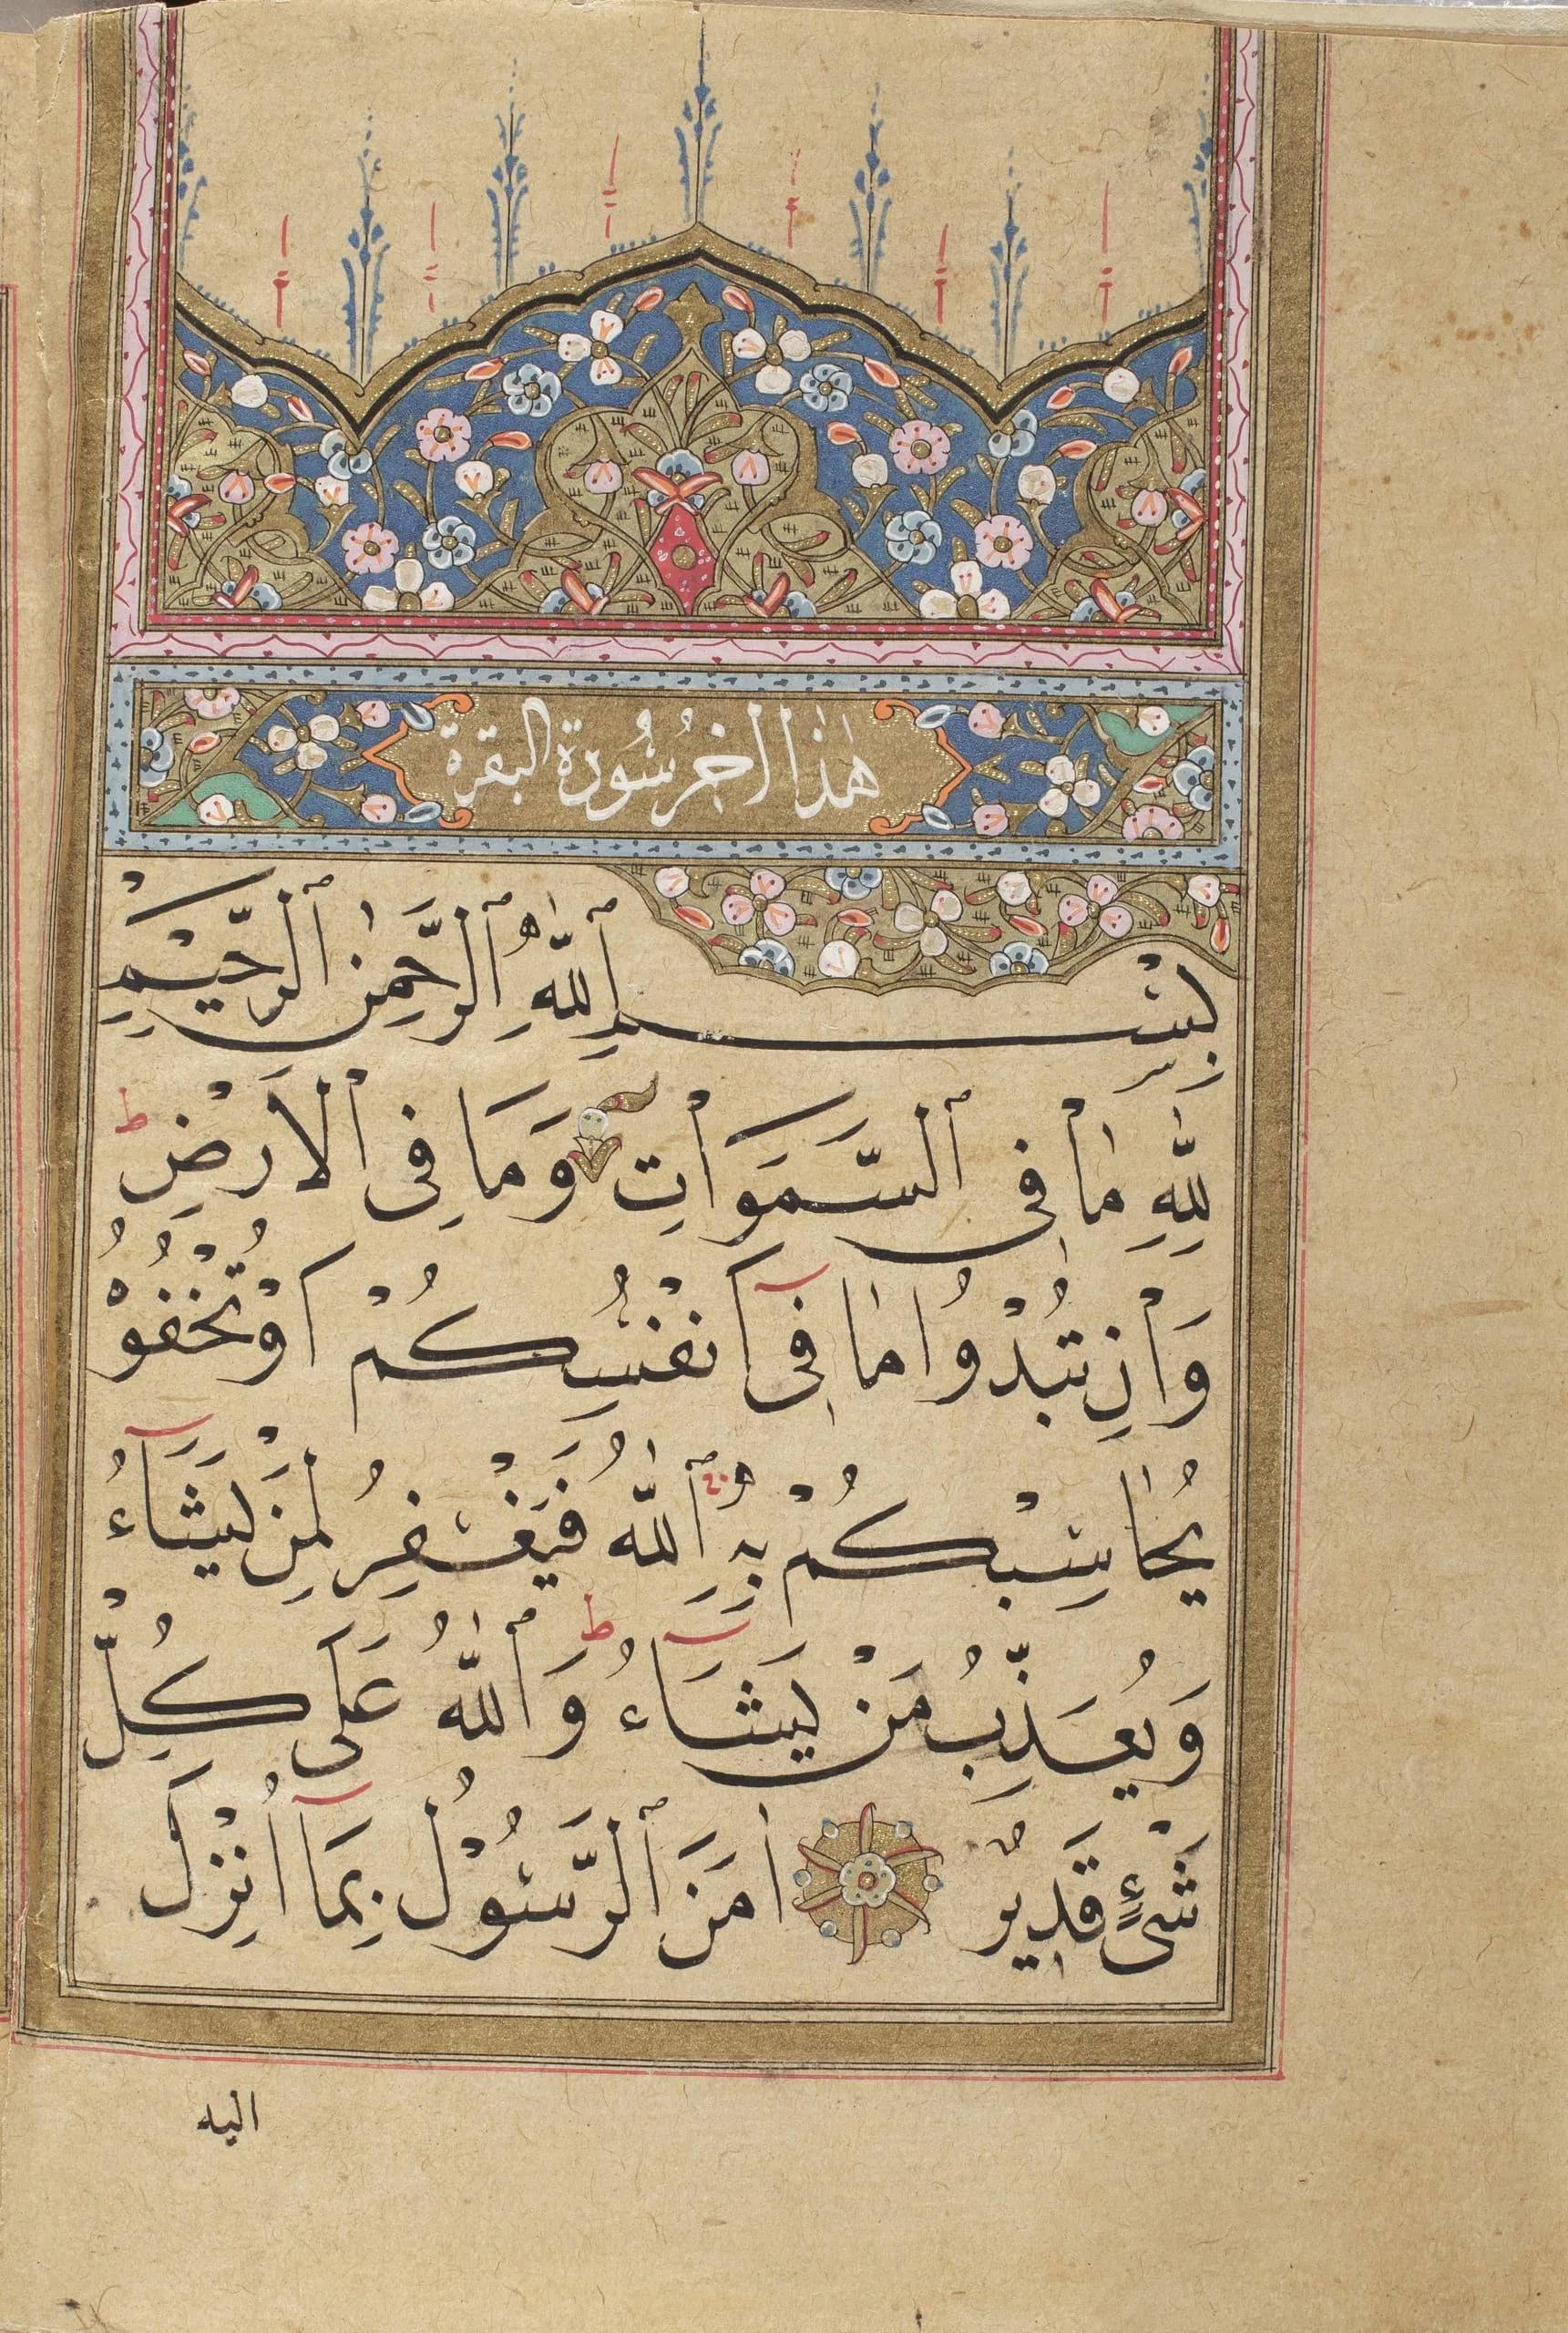 هٰذَا اٰخِرُ سُورَة البقرة
بِسْمِ ٱللّٰهِ ٱلرَّحْمٰنِ ٱلرَّحِيْمِ
لِلّٰهِ مٰا فِى ٱلسَّمَوٰاتِ وَمَا فِى ٱلْاَرْضِ ط
وَاِنْ تُبْدُوا مٰا فِىٓ اَنْفُسِكُمْ اَوْ تُخْفُوْهُ
يُحٰاسِبْكُمْ بِهِ ٱللّٰهُ فَيَغْفِرُ لِمَنْ يَشَٓاءُ
وَيُعَذِّبُ مَنْ يَشَٓاءُ ط وَٱللّٰهُ عَلَى كُلِّ
شَىْءٍ قَدِيرٌ اٰمَنَ ٱلرَّسُوْلُ بِمَٓا اُنْزِلَ
اليه